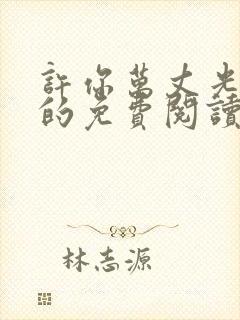 許你萬丈光
的免費閱讀
林志源